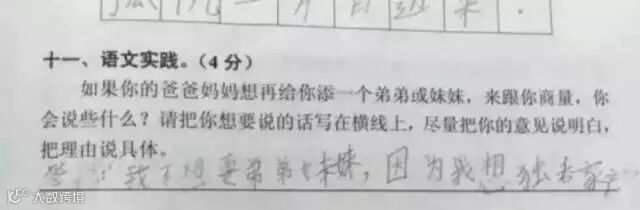 十一、语文实践。(4分)
如果你的爸爸妈妈想再给你添一个弟弟或妹妹，来跟你商量，你
会说些什么？请把你想要说的话写在横线上，尽量把你的意见说明白，
把理由说具体。
答：我不想要弟弟妹妹，因为我想独吞家产
大数跨境